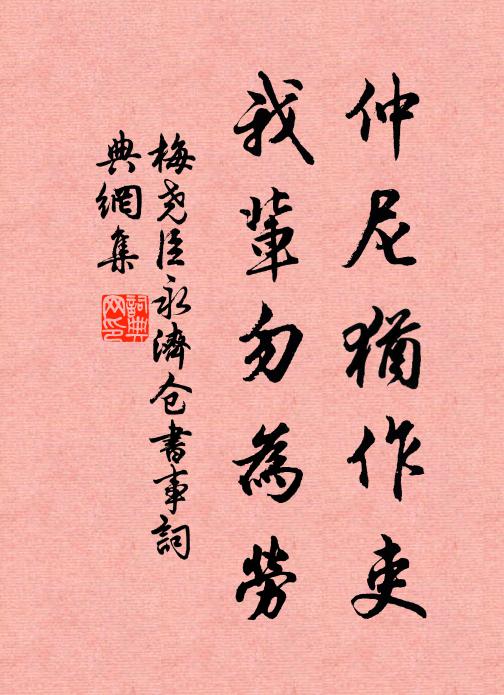 仲尼猶作吏
我輩勿為勞
梅堯臣永濟仓書事詞
典網集
詞典
网印